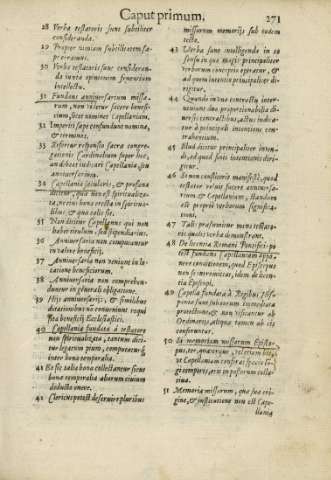 Caput primum. 271
28 Verba testatoris sunt subtiliter
consideranda.
29 Propter nimiam subtilitatem sæ-
pè errant.
30 Verba testatoris sunt consideran-
da iuxta opinionem
intellectu.
31 Fundans anniversarium missa-
rum, non videtur facere benefi-
cium, sicut nominet Capellaniam.
32 Imperiti sæpe confundunt nomina,
& terminos.
33 Refertur responsa sacra congre-
gationis Cardinalium super hoc,
an dicatur iudicari Capellania, seu
anniversarium.
34 Capellania secularis, & profana
dicitur, quæ non est spiritualiza-
ta, necnon bona erecta in spiritua-
libus, & quæ
35 Non dicitur Capellanus qui non
habet titulum, sed stipendiarius.
36 Anniversaria non computantur
in valore beneficij.
37 Anniversaria non veniunt in lo-
catione beneficiorum.
38 Anniversaria non comprehen-
duntur in generali obligatione.
39 His anniversarijs, & similibus
dictationibus non conveniunt requi
sita beneficij Ecclesiastici.
40 Capellania fundata à testatore
non spiritualizata, tantum dici-
tur legatum pium, computaturq́;
inter bona temporalia.
41 Et sic talia bona collectantur sicut
bona temporalia aliorum civium
deducto onere.
42 Clericus potest deservire pluribus
missarum memorijs sub eodem
tecto.
43 Verba sunt intelligenda in eo
sensu in quæ magis principaliter
verborum conceptus operatur, & ad
ad quem intentio principaliter di-
rigitur.
44 Quando in uno contractu inter-
veniunt duo proportionabilia di-
versis contractibus, actus iudica-
tur à principali intentione con-
trahentium.
45 Illud dicitur principaliter inten-
di, ad quod finis intentionis diri-
gitur.
46 Si non constiterit manifestè, quod
testator voluit facere anniversa-
rium & Capellaniam, standum
est propriè verborum significa-
tioni.
47 Talis præsumitur mens testato-
ris qualis verba demonstrant.
48 De licentia Romani Pontificis po-
test fundans Capellaniam appo-
nere conditionem, quod Episcopus
non se intromittat, idem de licen-
tia Episcopi.
49 Capella fundata à Regibus Hispa-
niæ sunt sub eorum immediata
protectione, & non visitantur ab
Ordinarijs, aliqua tamen ab eis
conferuntur.
50 In memoriam missarum Episco-
pus, ter, aut quater,
Capellaniam conferat
gi temporis, etiam posteorum colla-
tiva.
51 Memoria missarum, quæ sua ori-
gine, & institutione non est Cape-
llania